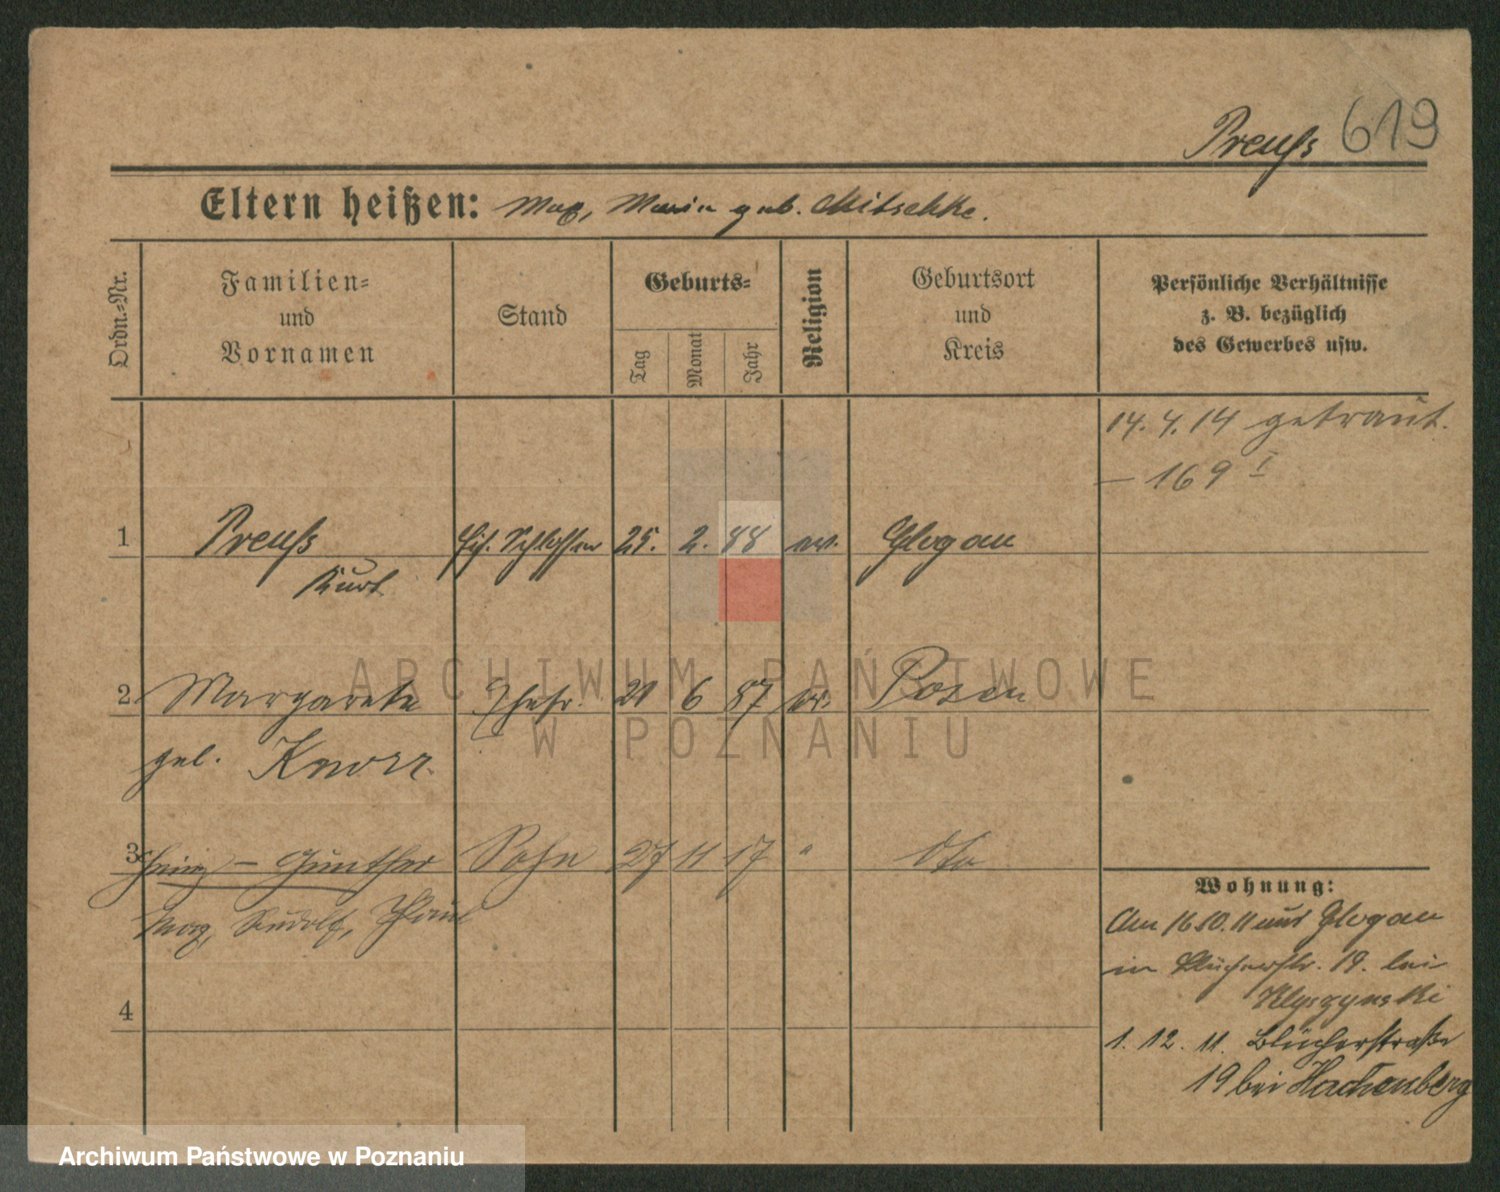 Preuß 619
Eltern heißen: Max, Maria geb. Mitschke.
Ordn.-Nr.
Familien-
und
Vornamen
Stand
Geburts-
Tag
Monat
Jahr
Religion
Geburtsort
und
Kreis
Persönliche Verhältnisse
z. B. bezüglich
des Gewerbes usw.
14. 4. 14 getraut.
– 169 I
1 Preuß Schlosser 25. 2. 88 ev. Glogau
Kurt
2 Margarete Ehefr. 21 6 87 ev. Posen
geb. Knorr.
3 Heinz – Günther Sohn 27 11 17 " dto
Max, Rudolf, Paul
4
Wohnung:
Am 16.10.11 aus Glogau
in Blücherstr. 19. bei
1. 12. 11. Blücherstraße
19 bei Hachenberg
ARCHIWUM PAŃSTWOWE
W POZNANIU
Archiwum Państwowe w Poznaniu